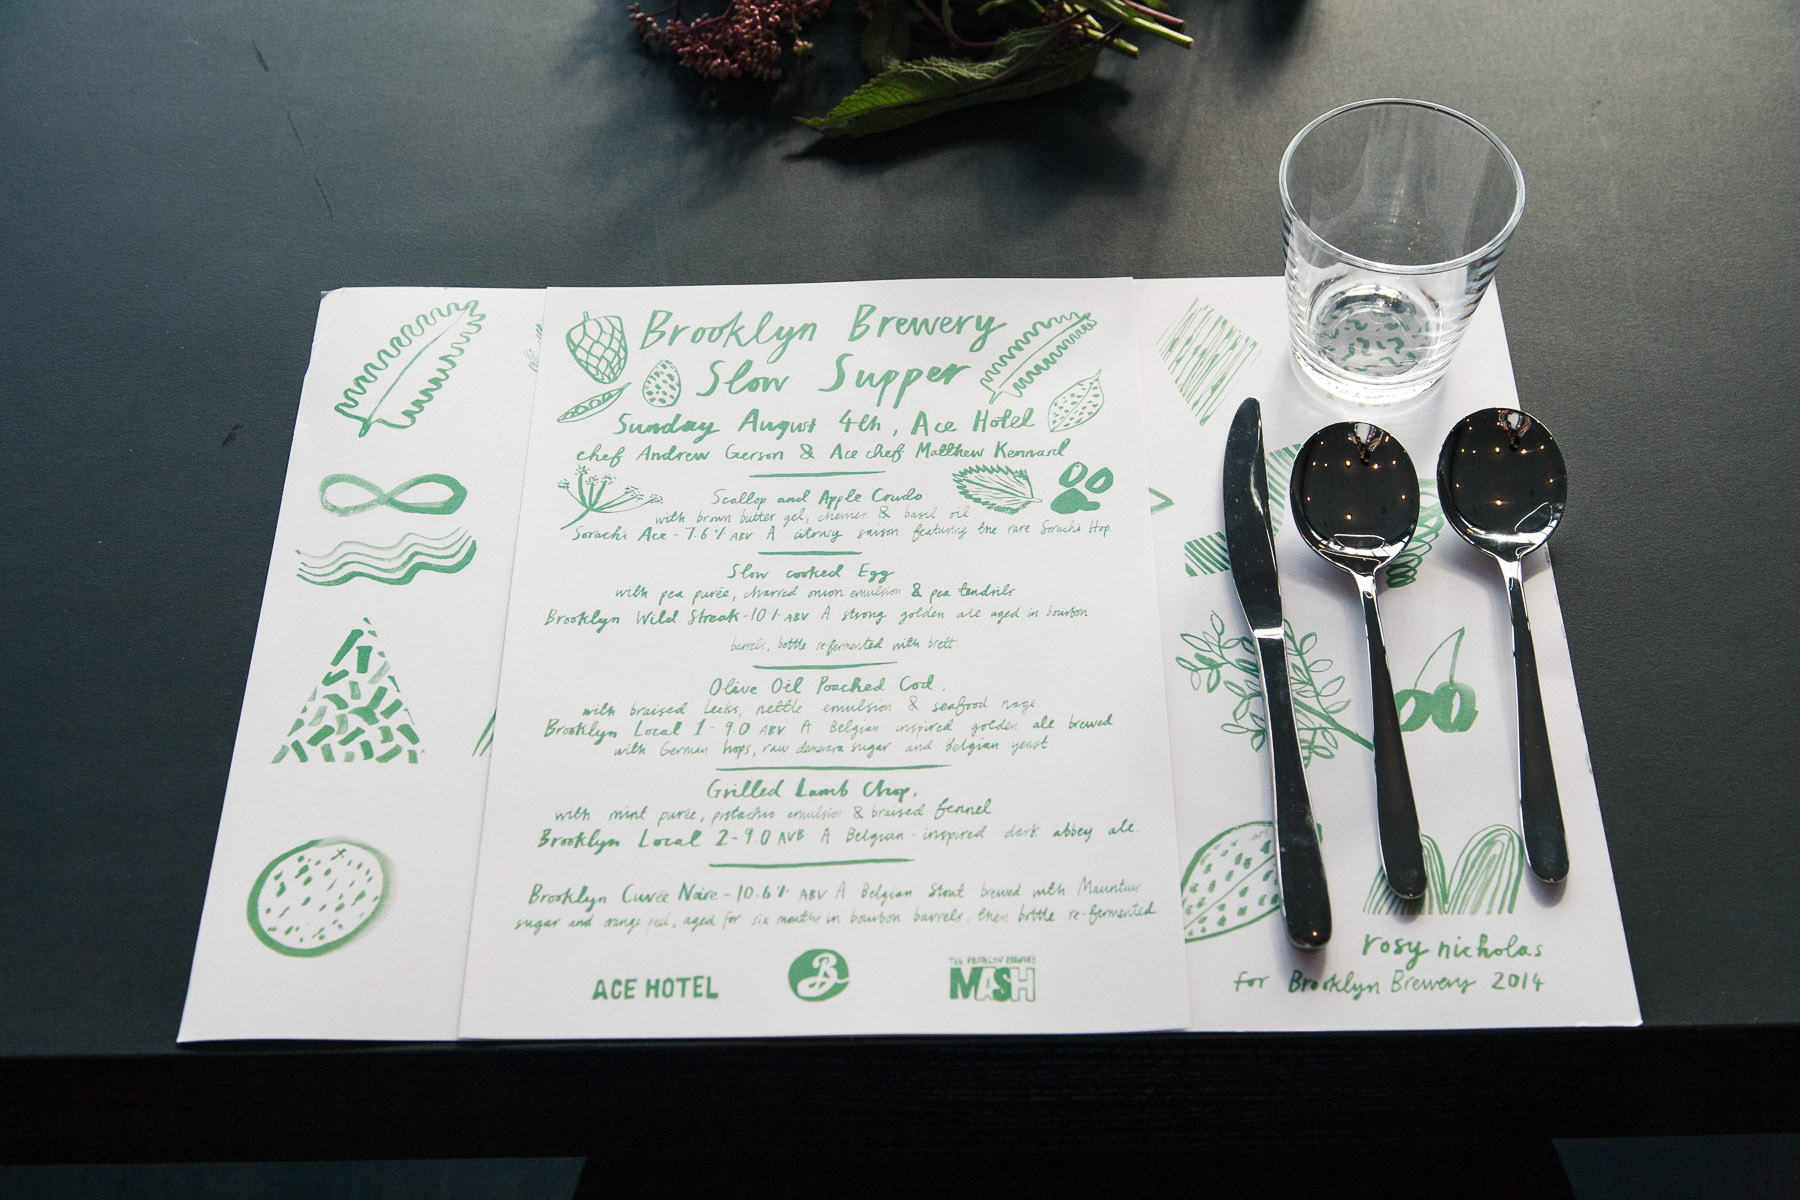 Brooklyn Brewery
Slow Supper
Sunday August 4th, Ace Hotel
chef Andrew Gerson & Ace chef Matthew Kennard
Scallop and Apple Crudo
with brown butter gel, cherries & basil oil.
Sorachi Ace - 7.6% ABV A citrusy saison featuring the rare Sorachi Hop.
Slow cooked Egg
with pea purée, charred onion emulsion & pea tendrils
Brooklyn Wild Streak - 10% ABV A strong golden ale aged in bourbon
barrels, bottle re-fermented with brett.
Olive Oil Poached Cod.
with braised leeks, nettle emulsion & seafood nage
Brooklyn Local 1 - 9.0 ABV A Belgian inspired golden ale brewed
with German hops, raw demerara sugar and Belgian yeast.
Grilled Lamb Chop.
with mint purée, pistachio emulsion & braised fennel
Brooklyn Local 2 - 9.0 AVB A Belgian - inspired dark abbey ale.
Brooklyn Cuvée Noire - 10.6% ABV A Belgian Stout brewed with
sugar and orange peel, aged for six months in bourbon barrels, then bottle re-fermented
ACE HOTEL
B
THE BROOKLYN BREWERY
MASH
rosy nicholas
for Brooklyn Brewery 2014